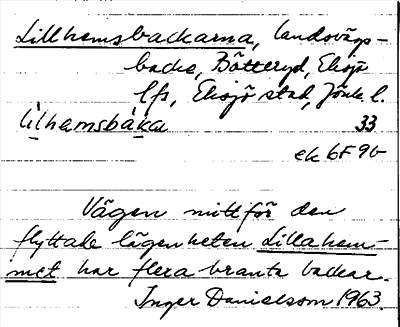 Lillhemsbackarna, landsvägs-
backe, Bötteryd, Eksjö
lfs, Eksjö stad, Jönk. l.
lilhemsbàkar 33
ek 6F 9b
Vägen mitt för den
flyttade lägenheten Lillahem-
met har flera branta backar.
Inger Danielsson 1963.